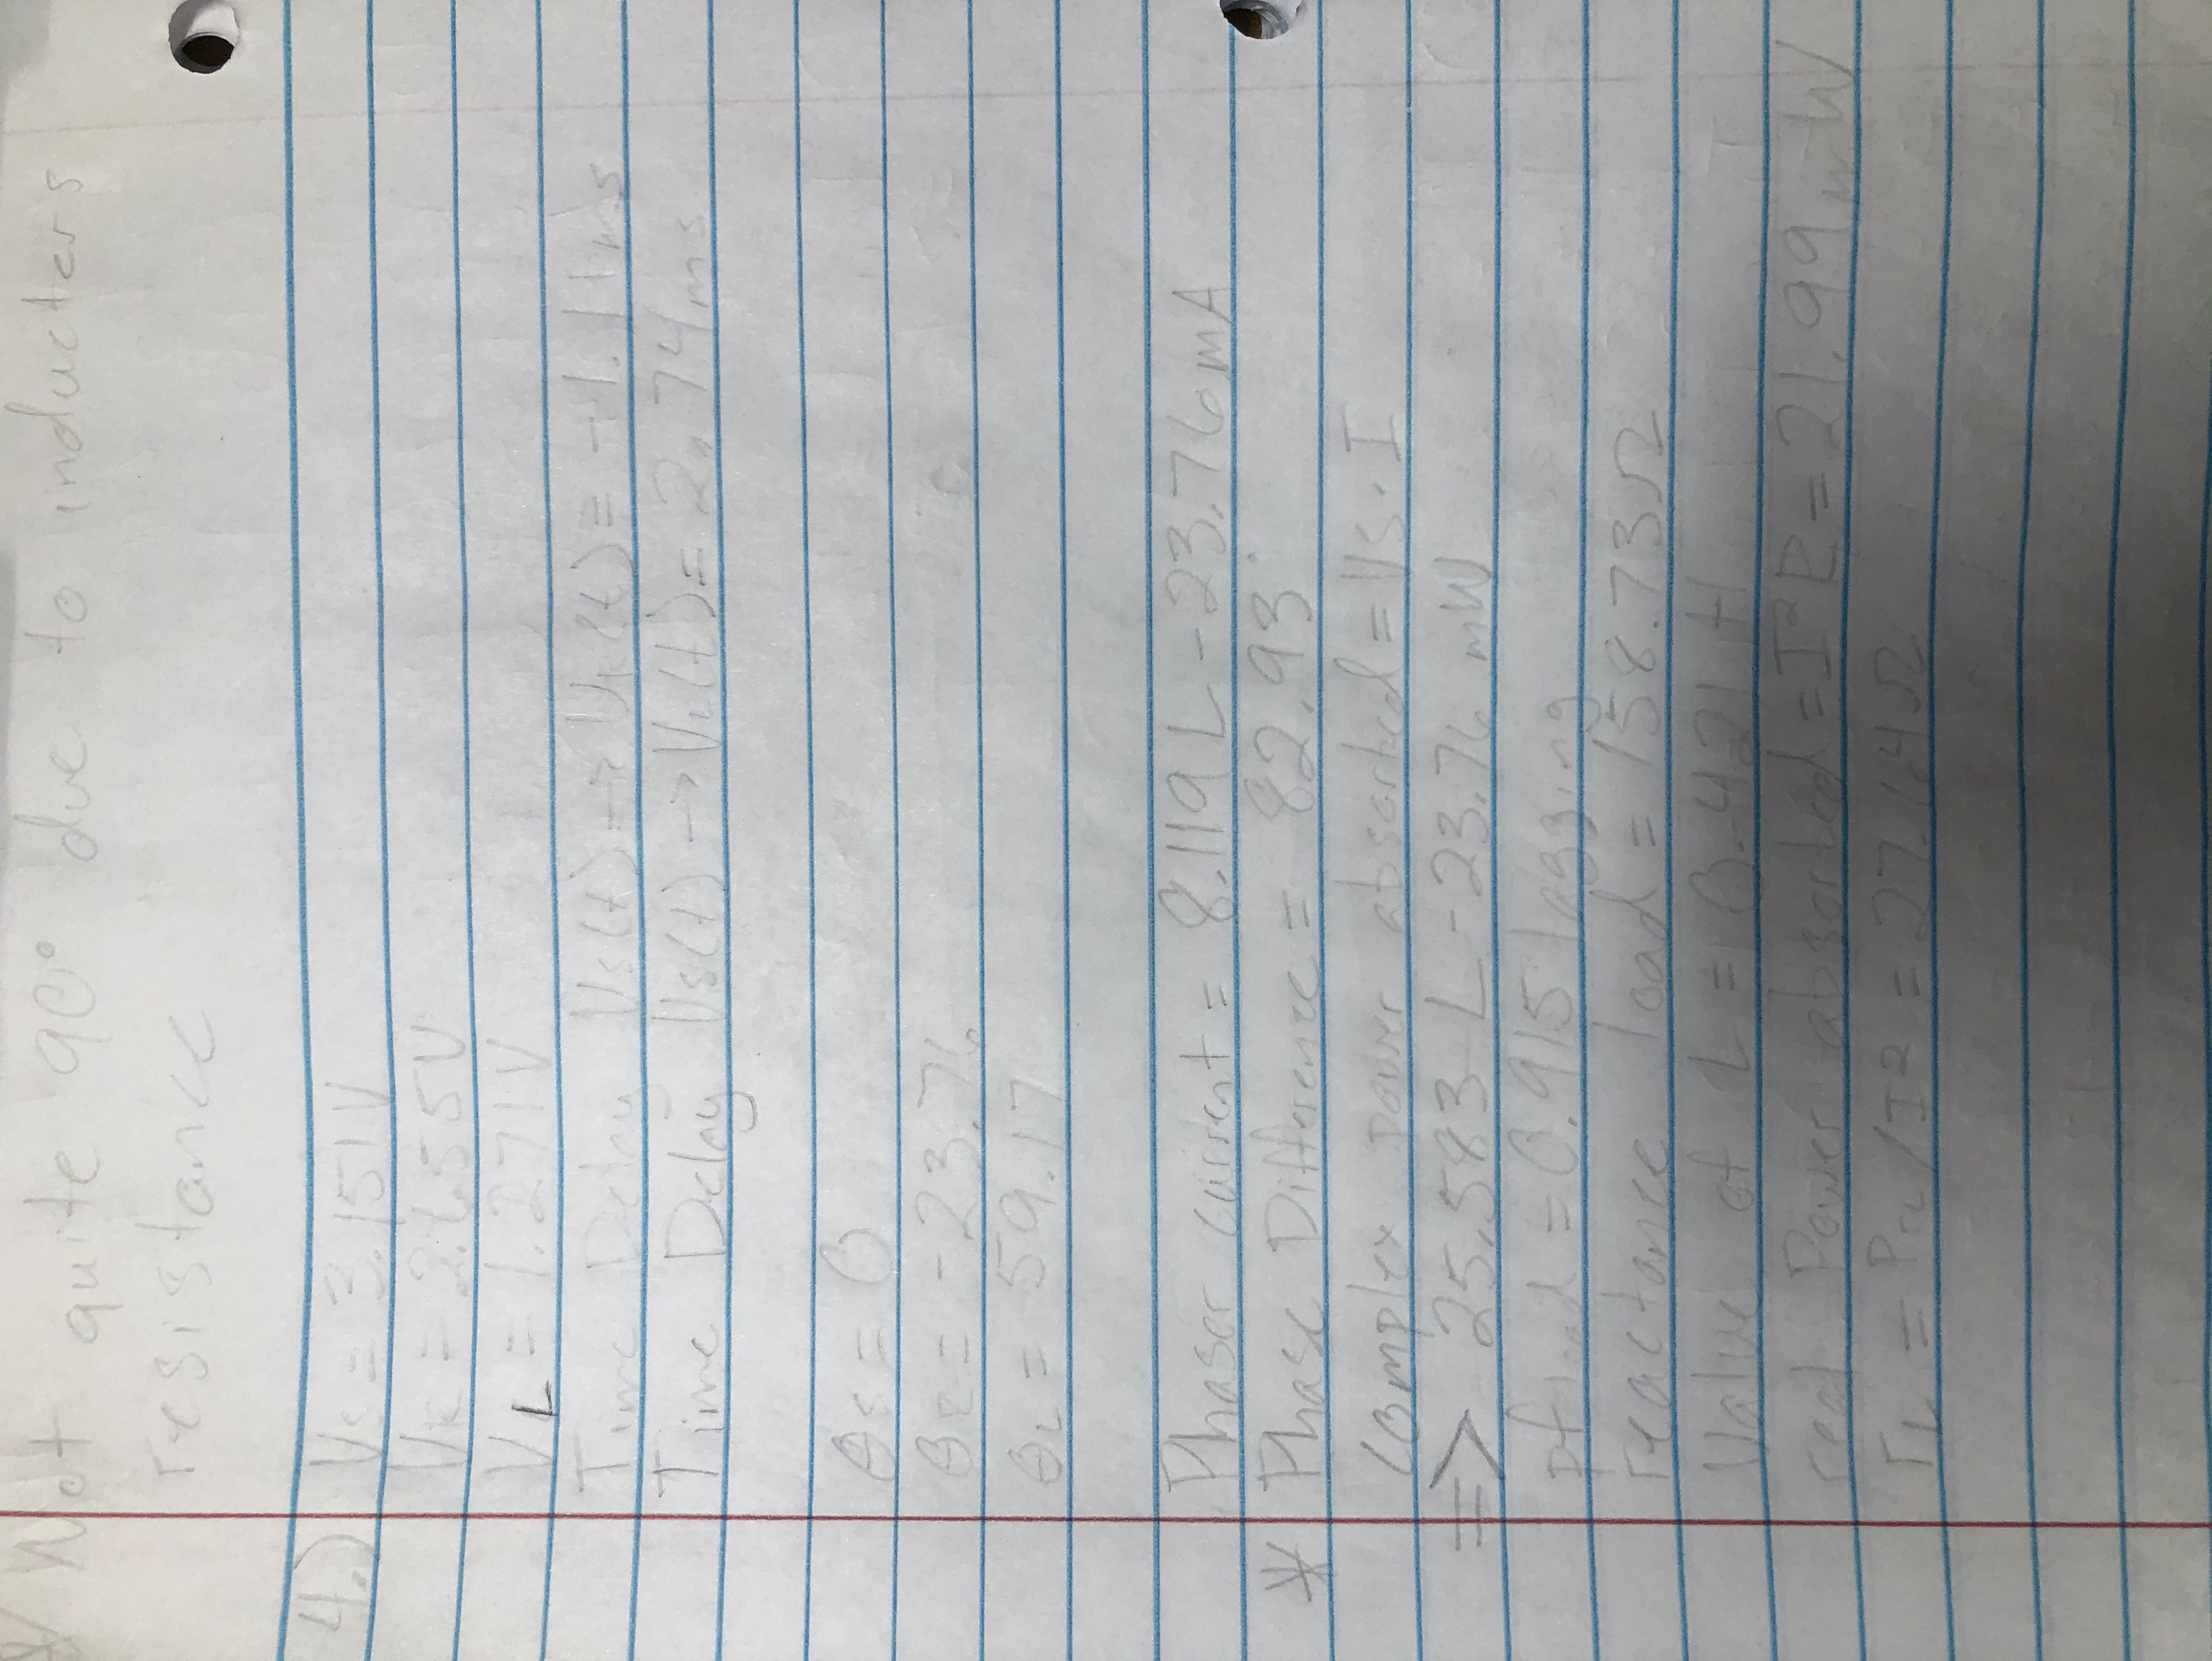 * Not quite 90° due to inducters
resistance
4.) Vs = 3.151V
VR = 2.655V
VL = 1.271V
Time Delay Vs(t) → VR(t) = -1.1ms
Time Delay Vs(t) → VL(t) = 2.74ms
θs = 0
θR = -23.76
θL = 59.17
Phasor current = 8.119 ∠-23.76mA
* Phase Difference = 82.93°
complex power absorbed = Vs · I
=> 25.583 ∠-23.76 mW
Pfload = 0.915 lagging
reactance load = 158.73Ω
Value of L = 0.421 H
real Power absorbed = I²R = 21.99mW
rL = PrL/I² = 27.64Ω